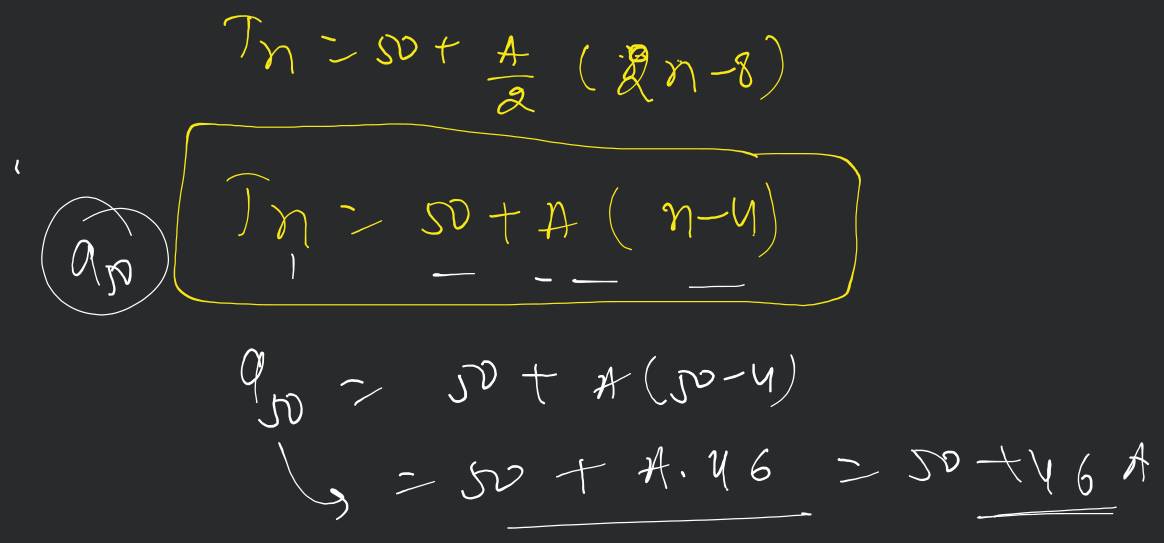 Tn = 50 + A/2 (2n-8)
Tn = 50 + A ( n-4)
a50
a50 = 50 + A(50-4)
= 50 + A.46 = 50+46 A